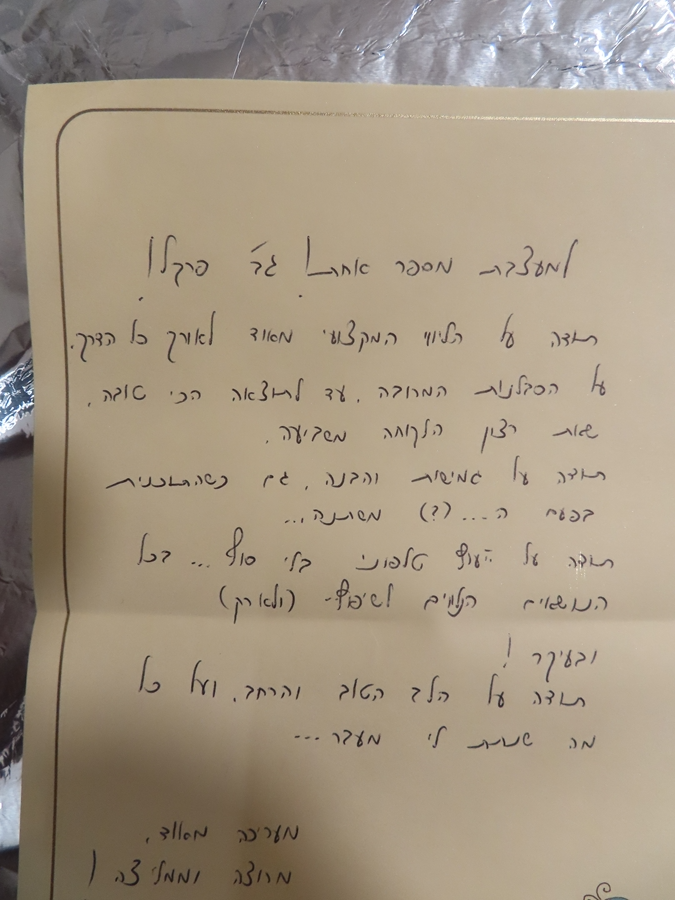 למעצבת מספר אחת! גב' פרקל!
תודה על הליווי המקצועי מאוד לאורך כל הדרך.
על הסבלנות המרובה, עד לתוצאה הכי טובה,
שאת רצון הלקוחה משביעה.
תודה על גמישות והבנה, גם כשהתוכנית
בפעם ה... (?) משתנה...
תודה על יעוץ טלפוני בלי סוף... בכל
הנושאים הנלווים לשיפוץ - (ולא רק)
ובעיקר!
תודה על הלב הטוב והרחב, ועל כל
מה שנתת לי מעבר...
מעריכה מאוד,
מרוצה וממליצה!